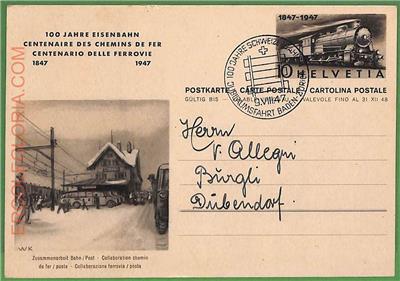 100 JAHRE EISENBAHN
CENTENAIRE DES CHEMINS DE FER
CENTENARIO DELLE FERROVIE
1847 1947
1847-1947
10 HELVETIA
POSTKARTE CARTE POSTALE CARTOLINA POSTALE
GÜLTIG BIS VALEVOLE FINO AL 31 XII 48
100 JAHRE SCHWEIZ.
JUBILÄUMSFAHRT BADEN-ZÜRICH
9.VIII.47
Herrn
v. Allegri
Bürgli
Dübendorf.
WK
Zusammenarbeit Bahn / Post - Collaboration chemin
de fer / poste - Collaborazione ferrovia / posta
ERCOLEGLORIA.COM